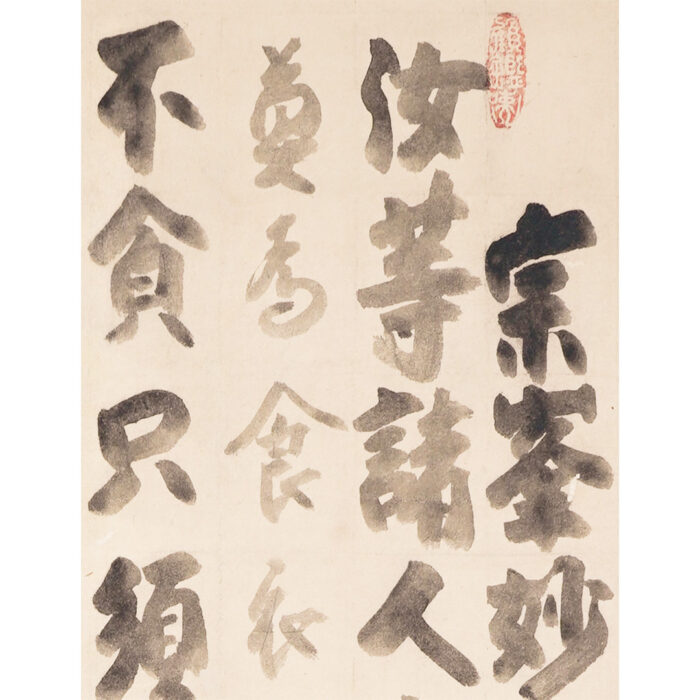 宗峯妙
汝等諸人
莫為食衣
不貪只須